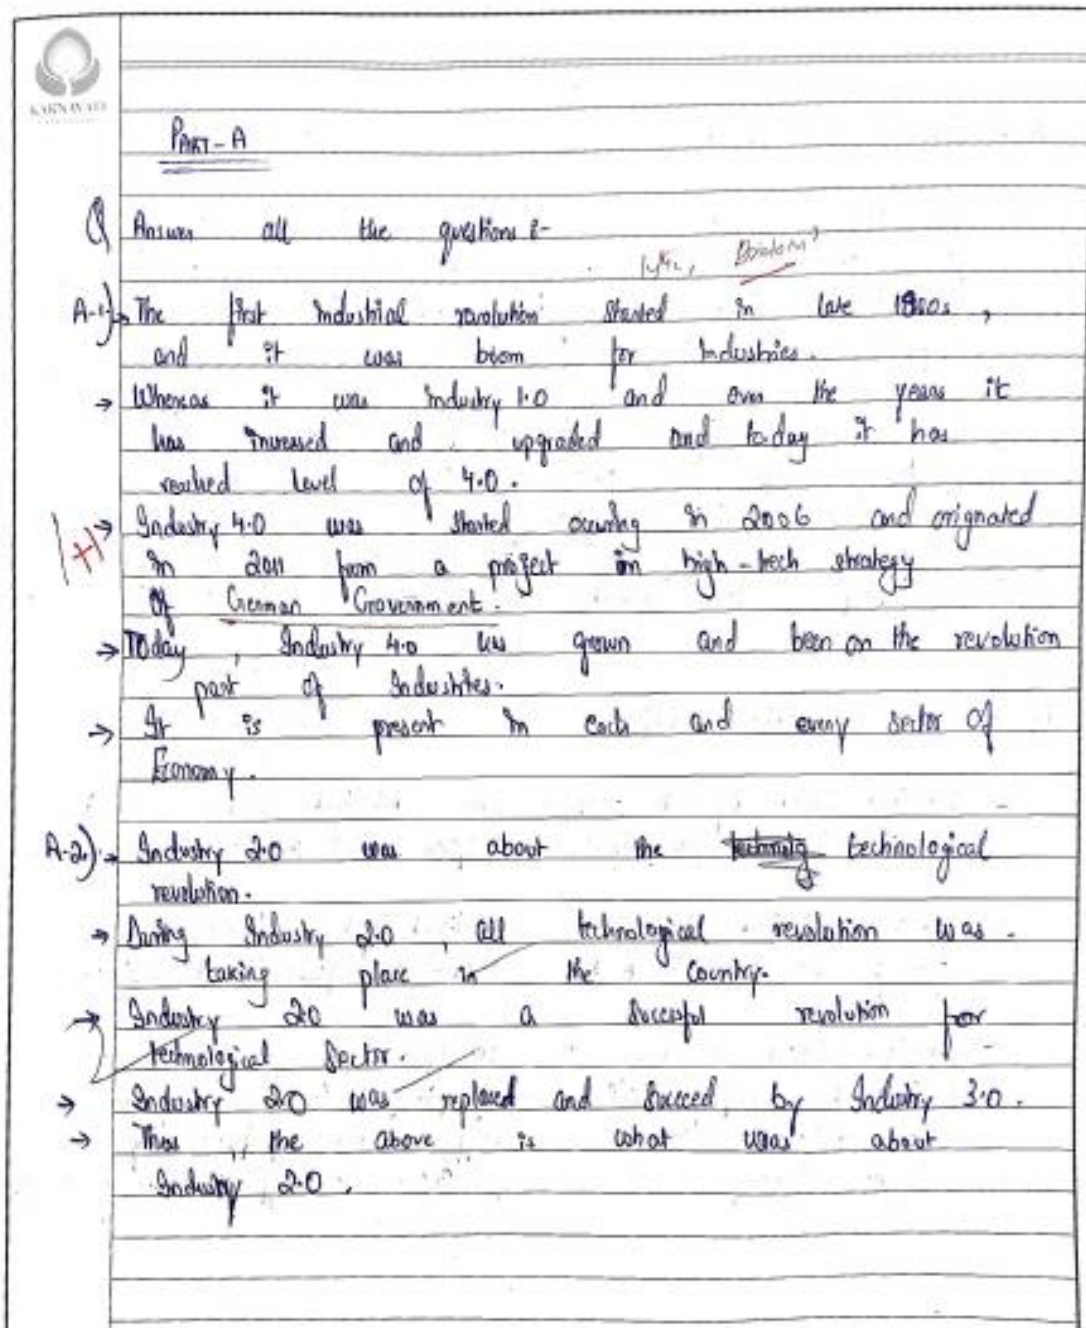 KARNAVATI
PART-A
Q Answer all the questions :-
A-1) → The first industrial revolution started in late 1800s,
and it was boom for industries.
→ Whereas it was industry 1.0 and over the years it
has incresed and upgraded and today it has
reached level of 4.0.
1+1
→ Industry 4.0 was started occuring in 2006 and orignated
in 2011 from a project in high-tech strategy
of German Government.
→ Today, Industry 4.0 has grown and been on the revolution
part of Industries.
→ It is present in each and every sector of
Economy.
A-2.) → Industry 2.0 was about the technological
revolution.
→ During Industry 2.0, all technological revolution was
taking place in the Country.
→ Industry 2.0 was a Succesful revolution for
technological Sector.
→ Industry 2.0 was replaced and Succeed by Industry 3.0.
→ Thus, the above is what was about
Industry 2.0.